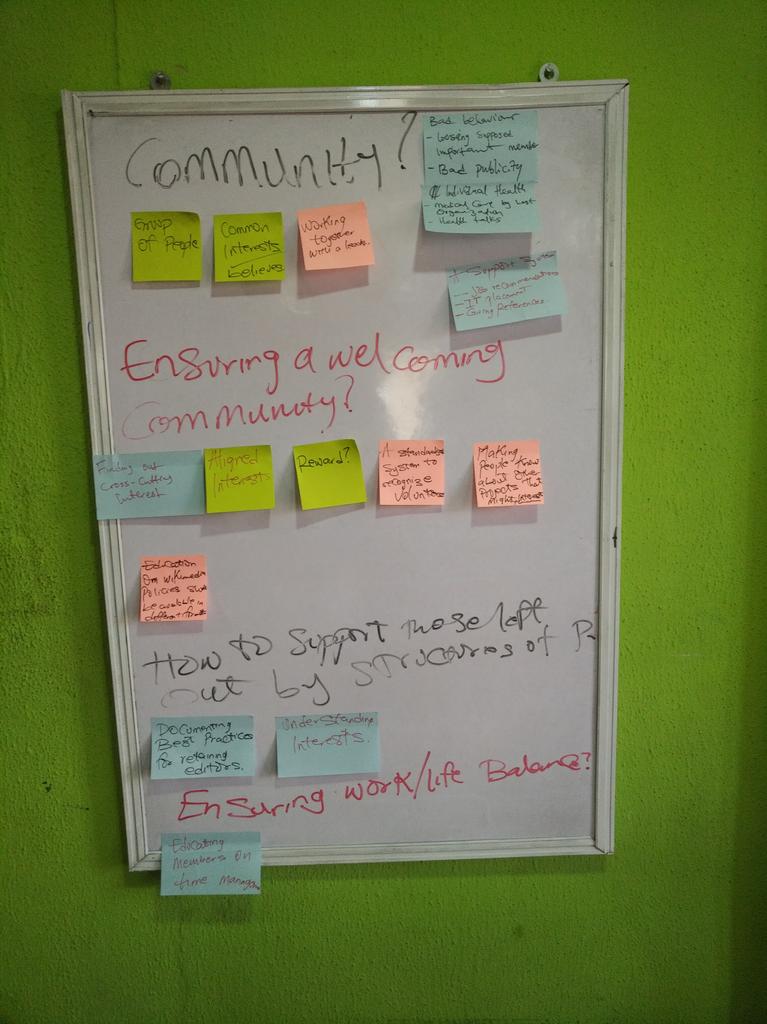 Community?
Bad behaviour
- Loosing supposed
important member
- Bad publicity
Individual Health
- Medical Care by
Organization
- Health talks
Group
of People
Common
Interests
believes
Working
together
with a leader.
A Support System
- Job recommendations
- IT placement
- Giving References
Ensuring a welcoming
Community?
Finding out
Cross-Cutting
Interest
Aligned
Interests
Reward?
A standardized
System to
recognize
volunteers
Making
People know
about other
Projects that
might interest
Education
on wikimedia
Policies
be available in
different formats
How to support those left
out by structures of P-
Documenting
Best Practices
for retaining
editors.
Understanding
Interests.
Ensuring work/life Balance?
Educating
Members on
time